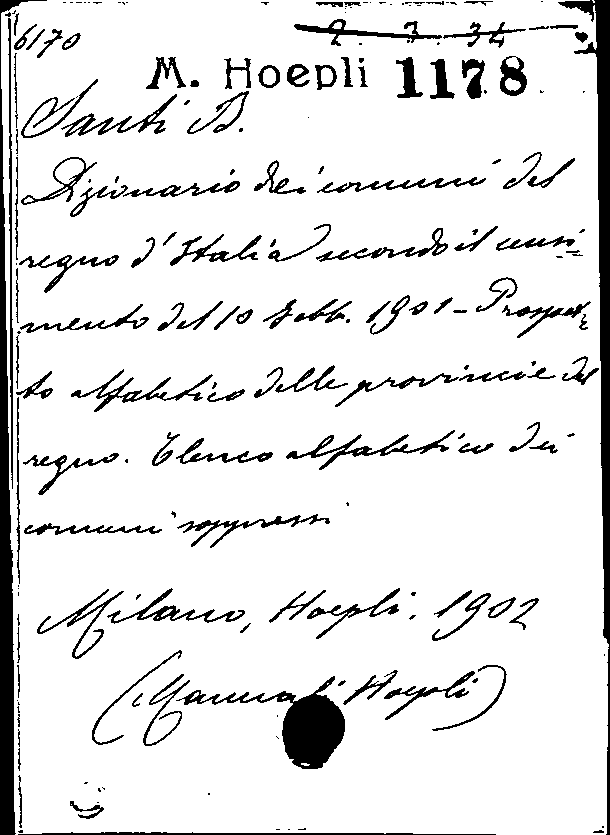 6170
2. 3. 34
M. Hoepli 1178
Santi B.
Dizionario dei comuni del
regno d'Italia secondo il censi
mento del 10 Febb. 1901 - Prospet
to alfabetico delle provincie del
regno. Elenco alfabetico dei
comuni soppressi
Milano, Hoepli. 1902
(Manuali Hoepli)